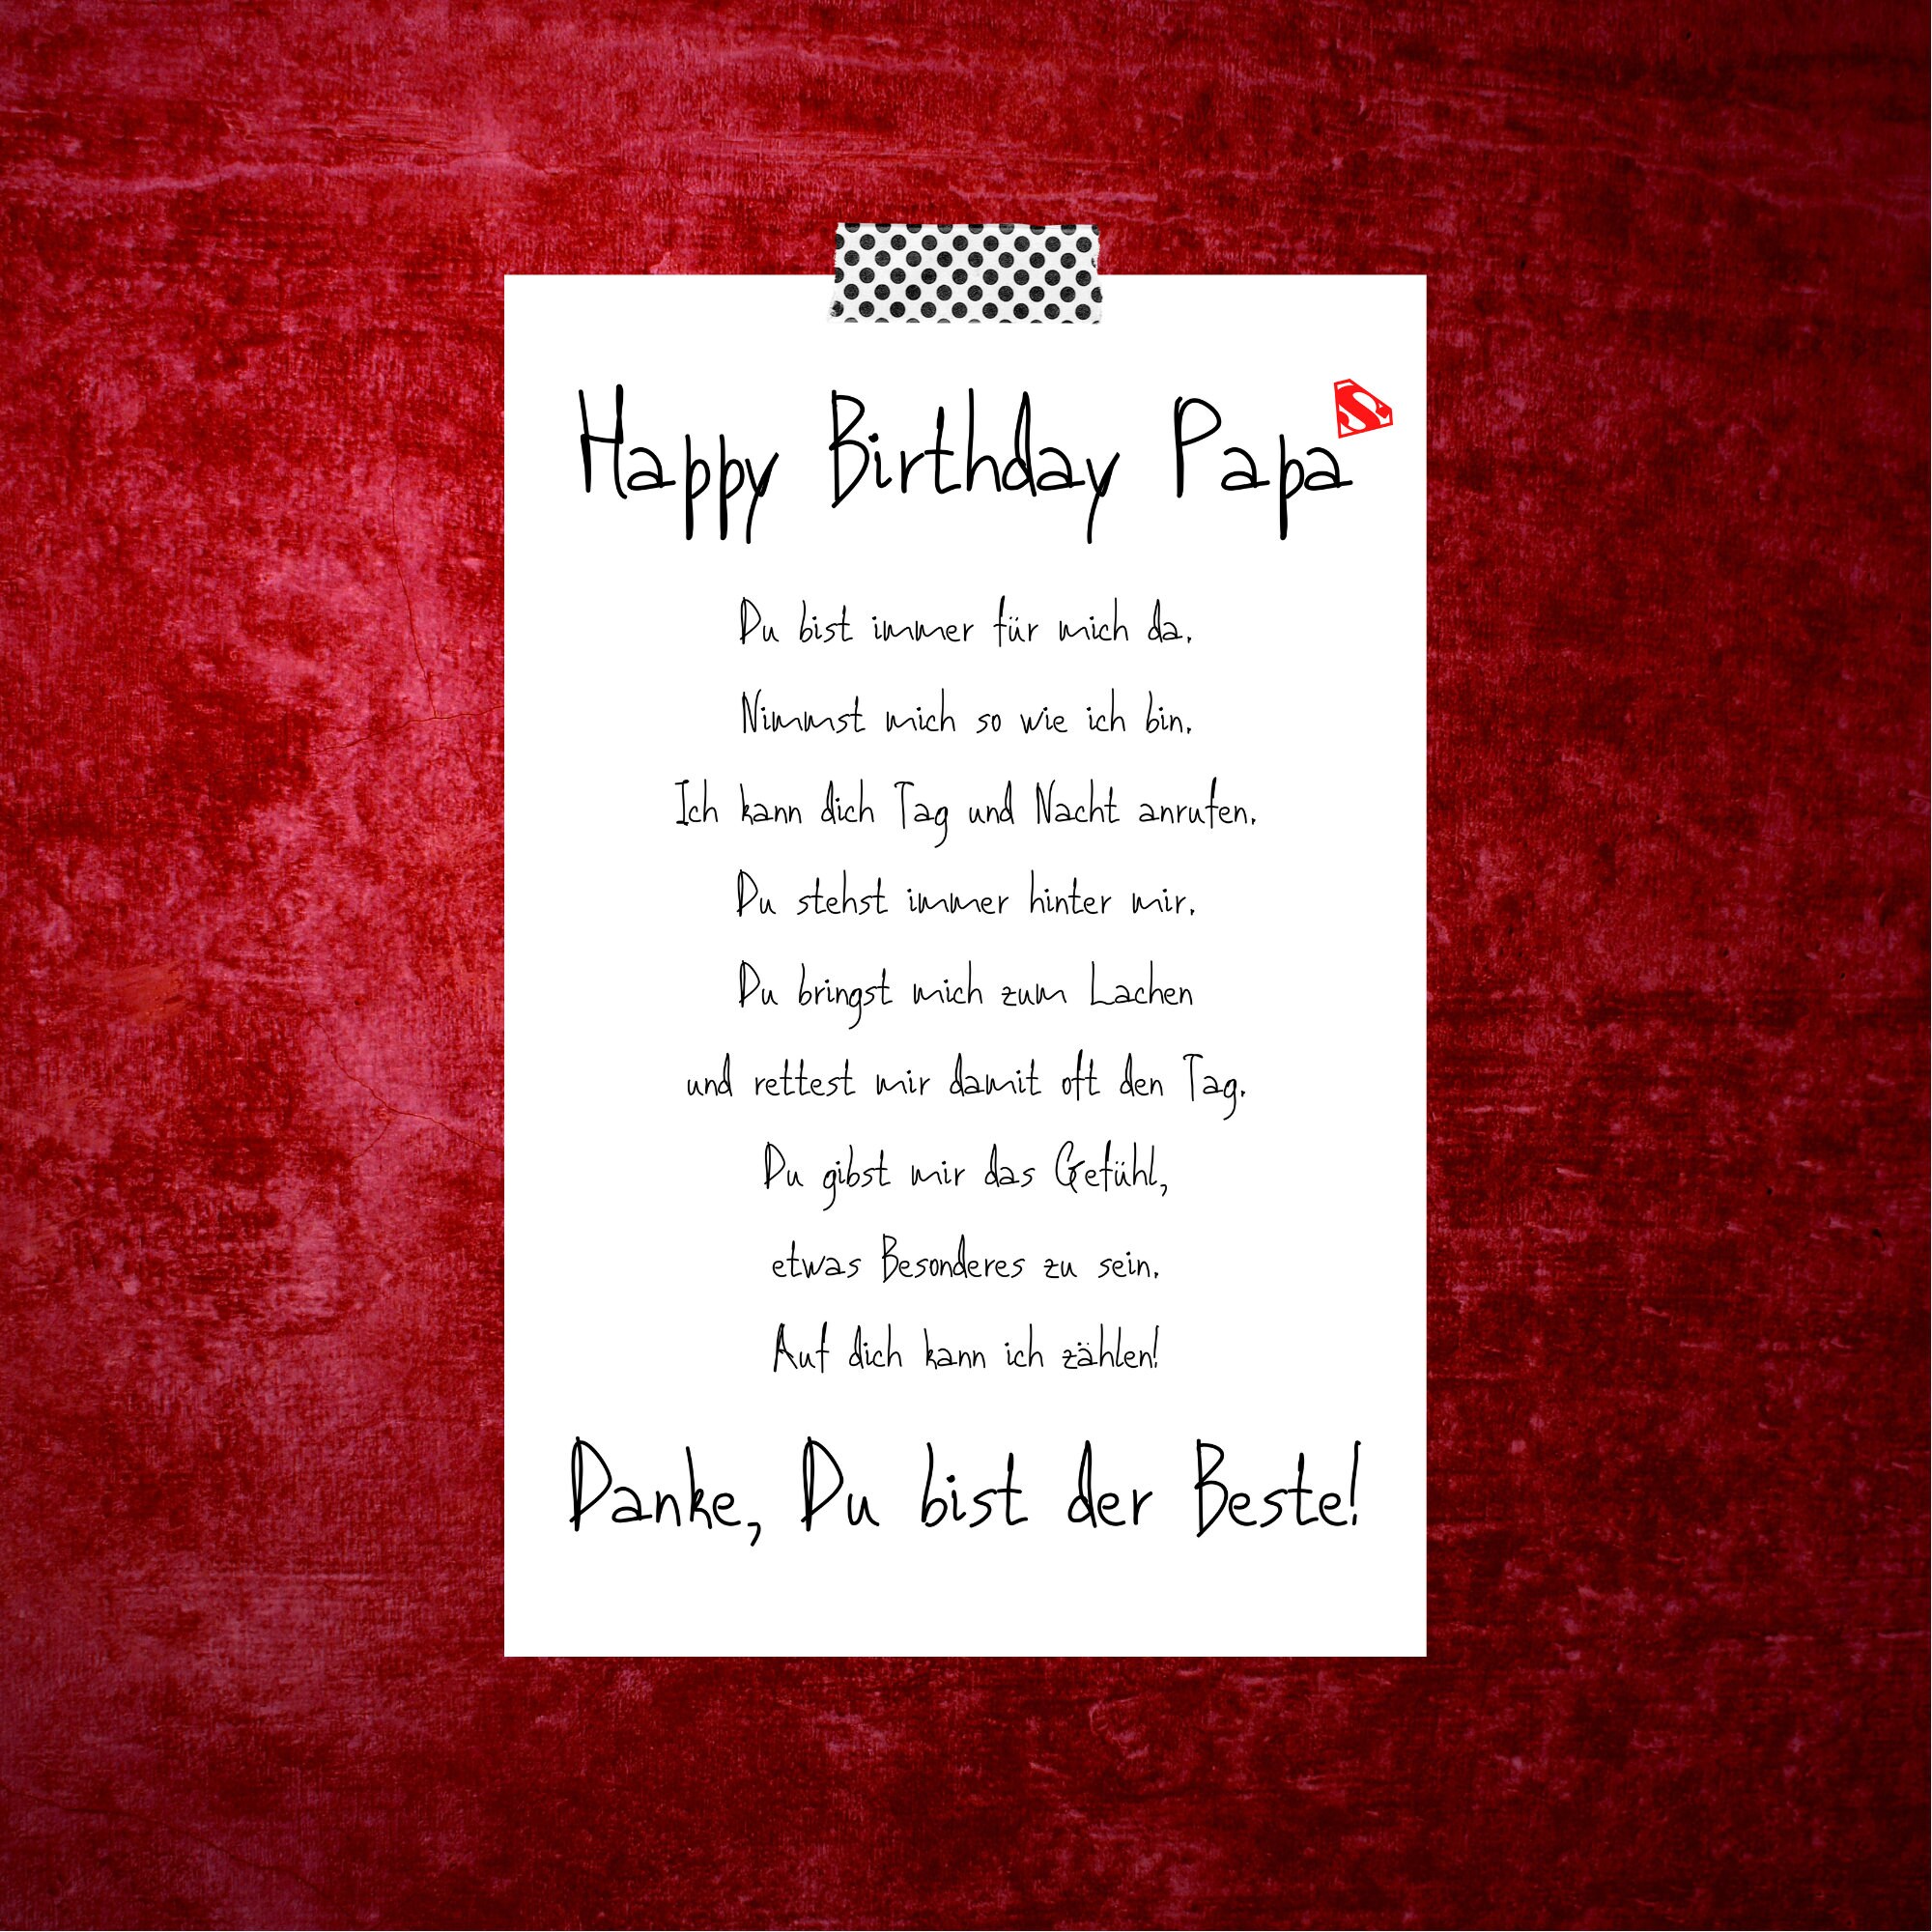 Happy Birthday Papa
Du bist immer für mich da.
Nimmst mich so wie ich bin.
Ich kann dich Tag und Nacht anrufen.
Du stehst immer hinter mir.
Du bringst mich zum Lachen
und rettest mir damit oft den Tag.
Du gibst mir das Gefühl,
etwas Besonderes zu sein.
Auf dich kann ich zählen!
Danke, Du bist der Beste!